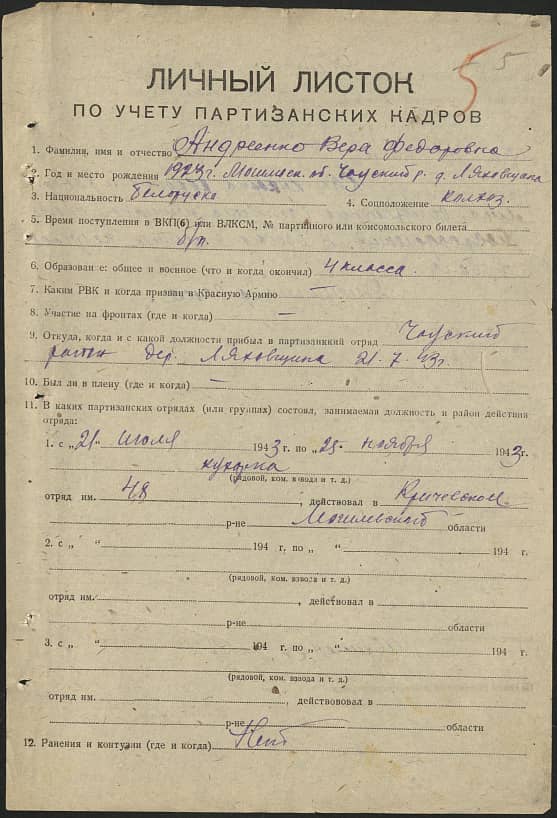 5 5
ЛИЧНЫЙ ЛИСТОК
ПО УЧЕТУ ПАРТИЗАНСКИХ КАДРОВ
1. Фамилия, имя и отчество Андреенко Вера Федоровна
2. Год и место рождения 1923 г. Могилевск. об. Чауский р. д. Ляховщина
3. Национальность белоруска 4. Соцположение колхоз.
5. Время поступления в ВКП(б) или ВЛКСМ, № партийного или комсомольского билета
б/п.
6. Образование: общее и военное (что и когда окончил) 4 класса.
7. Каким РВК и когда призван в Красную Армию —
8. Участие на фронтах (где и когда) —
9. Откуда, когда и с какой должности прибыл в партизанский отряд Чауский
район дер. Ляховщина 21.7.43г.
10. Был ли в плену (где и когда) —
11. В каких партизанских отрядах (или группах) состоял, занимаемая должность и район действия
отряда:
1. с „21“ июля 1943 г. по „25“ ноября 1943 г.
(рядовой, ком. взвода и т. д.)
отряд им. 48, действовал в Кричевском
р-не Могилевского области
2. с „ “ 194 г. по „ “ 194 г.
(рядовой, ком. взвода и т. д.)
отряд им. , действовал в
р-не области
3. с „ “ 194 г. по „ “ 194 г.
(рядовой, ком. взвода и т. д.)
отряд им. , действововал в
р-не области
12. Ранения и контузии (где и когда) Нет